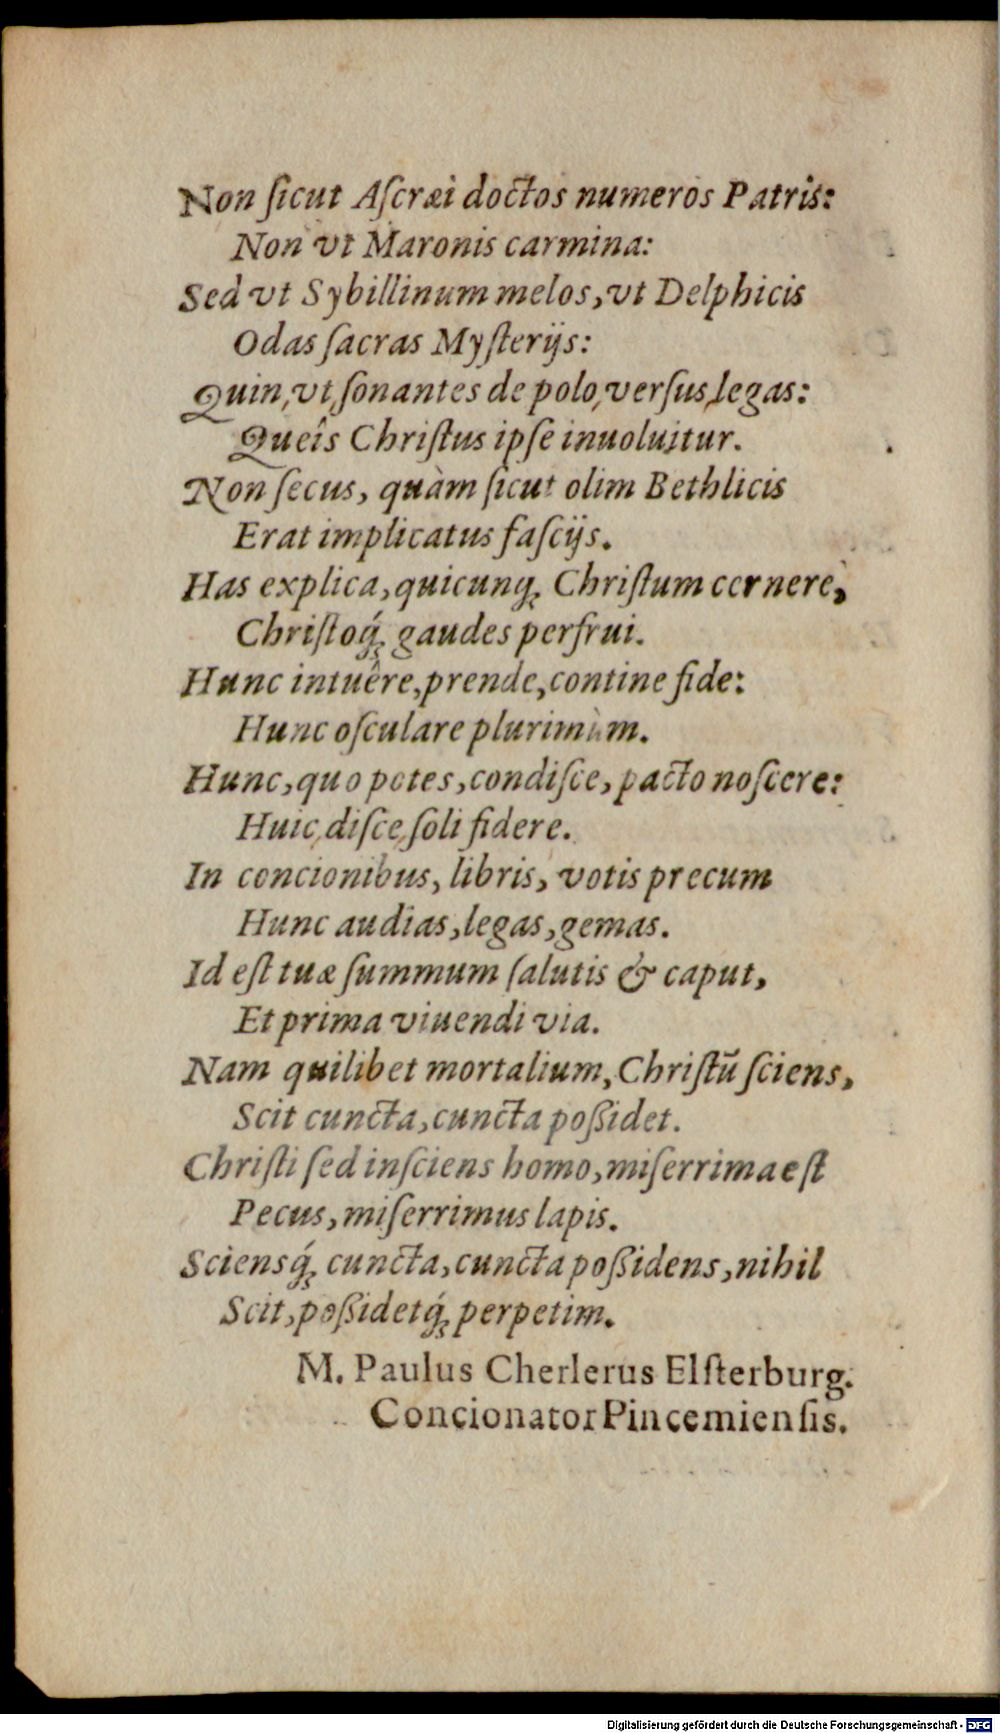 Non ſicut Aſcræi doctos numeros Patris:
Non vt Maronis carmina:
Sed vt Sybillinum melos, vt Delphicis
Odas ſacras Myſterijs:
Quin, vt, ſonantes de polo, verſus, legas:
Queîs Chriſtus ipſe inuoluitur.
Non ſecus, quàm ſicut olim Bethlicis
Erat implicatus faſcijs.
Has explica, quicunq; Chriſtum cernere,
Chriſtoq́; gaudes perfrui.
Hunc intuêre, prende, contine fide:
Hunc oſculare plurimùm.
Hunc, quo potes, condiſce, pacto noſcere:
Huic, diſce, ſoli fidere.
In concionibus, libris, votis precum
Hunc audias, legas, gemas.
Id eſt tuæ ſummum ſalutis & caput,
Et prima viuendi via.
Nam quilibet mortalium, Chriſtū ſciens,
Scit cuncta, cuncta poßidet.
Chriſti ſed inſciens homo, miſerrima eſt
Pecus, miſerrimus lapis.
Sciensq́; cuncta, cuncta poßidens, nihil
Scit, poßidetq́; perpetim.
M. Paulus Cherlerus Elſterburg.
Concionator Pincemienſis.
Digitalisierung gefördert durch die Deutsche Forschungsgemeinschaft - DFG